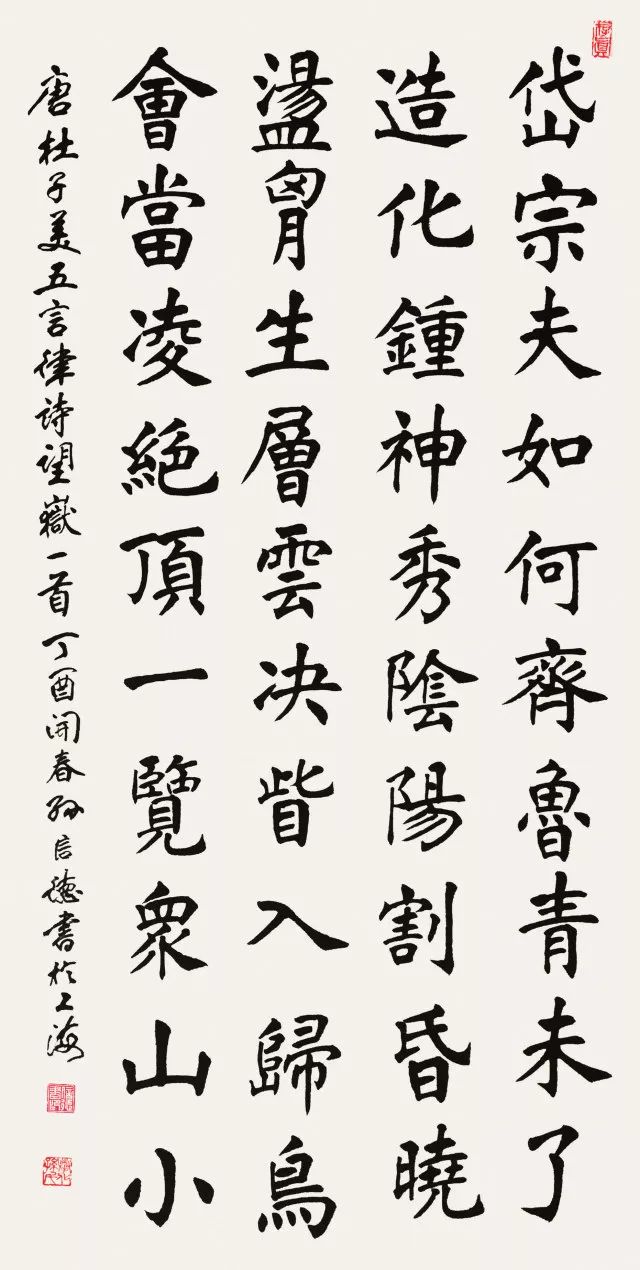 岱宗夫如何齊魯青未了
造化鍾神秀陰陽割昏曉
盪胷生層雲決眥入歸鳥
會當凌絕頂一覽衆山小
唐杜子美五言律詩望嶽一首丁酉開春孫信德書於上海